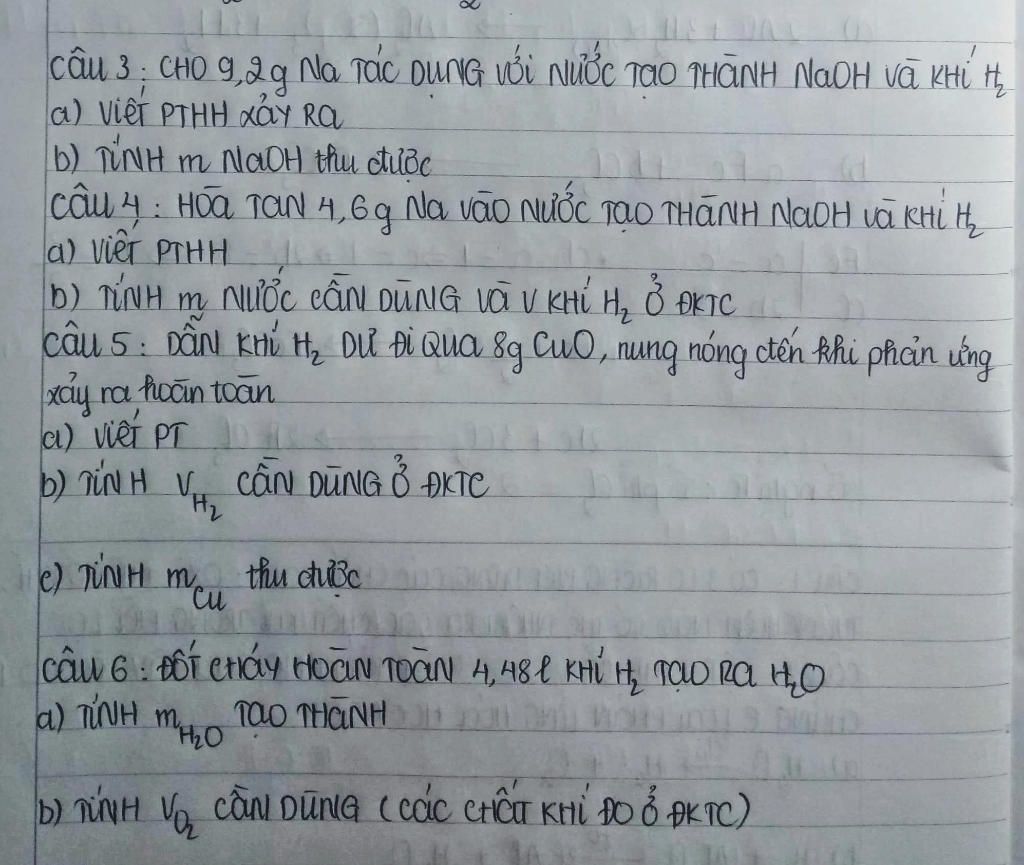 Câu 3 : CHO 9,2g Na TÁC DỤNG VỚI NƯỚC TẠO THÀNH NaOH VÀ KHÍ H₂
a) VIẾT PTHH XẢY RA
b) TÍNH m NaOH thu được
Câu 4 : HÒA TAN 4,6g Na VÀO NƯỚC TẠO THÀNH NaOH VÀ KHÍ H₂
a) VIẾT PTHH
b) TÍNH m NƯỚC CẦN DÙNG VÀ V KHÍ H₂ Ở ĐKTC
Câu 5 : DẪN KHÍ H₂ DƯ ĐI QUA 8g CuO, nung nóng đến khi phản ứng
xảy ra hoàn toàn
a) VIẾT PT
b) TÍNH V_H₂ CẦN DÙNG Ở ĐKTC
c) TÍNH m_Cu thu được
Câu 6 : ĐỐT CHÁY HOÀN TOÀN 4,48l KHÍ H₂ TẠO RA H₂O
a) TÍNH m_H₂O TẠO THÀNH
b) TÍNH V_O₂ CẦN DÙNG (CÁC CHẤT KHÍ ĐO Ở ĐKTC)